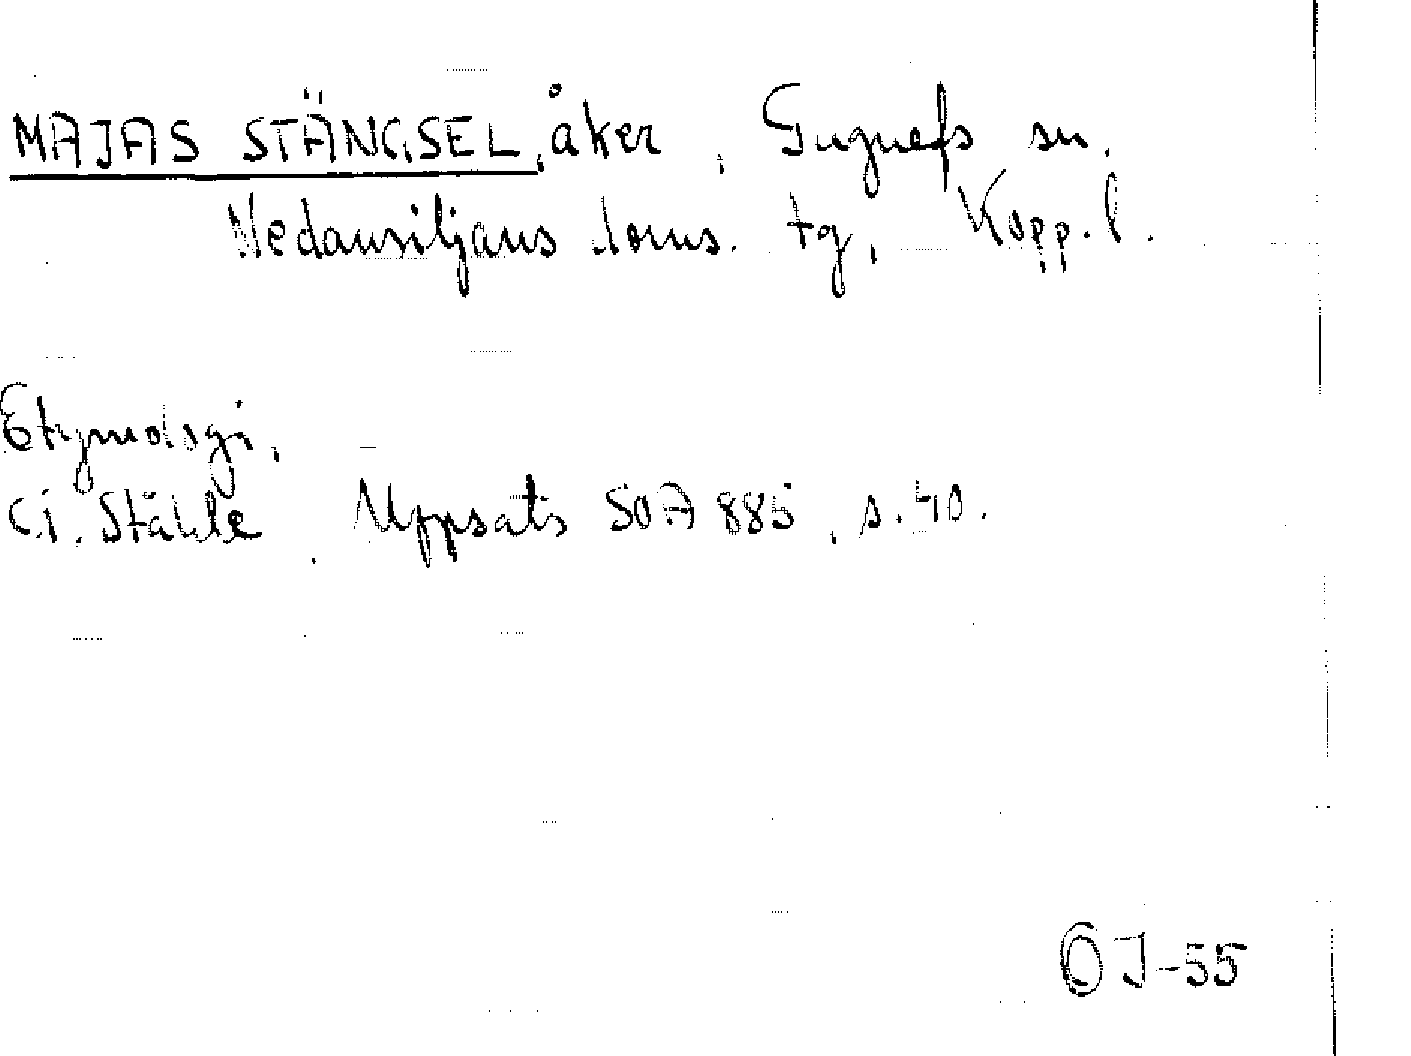 MAJAS STÄNGSEL, åker, Gagnefs sn.
Nedansiljans doms. tg, Kopp.l.
Etymologi,
C.I. Ståhle, Uppsats SOA 885, s.40.
OJ-55